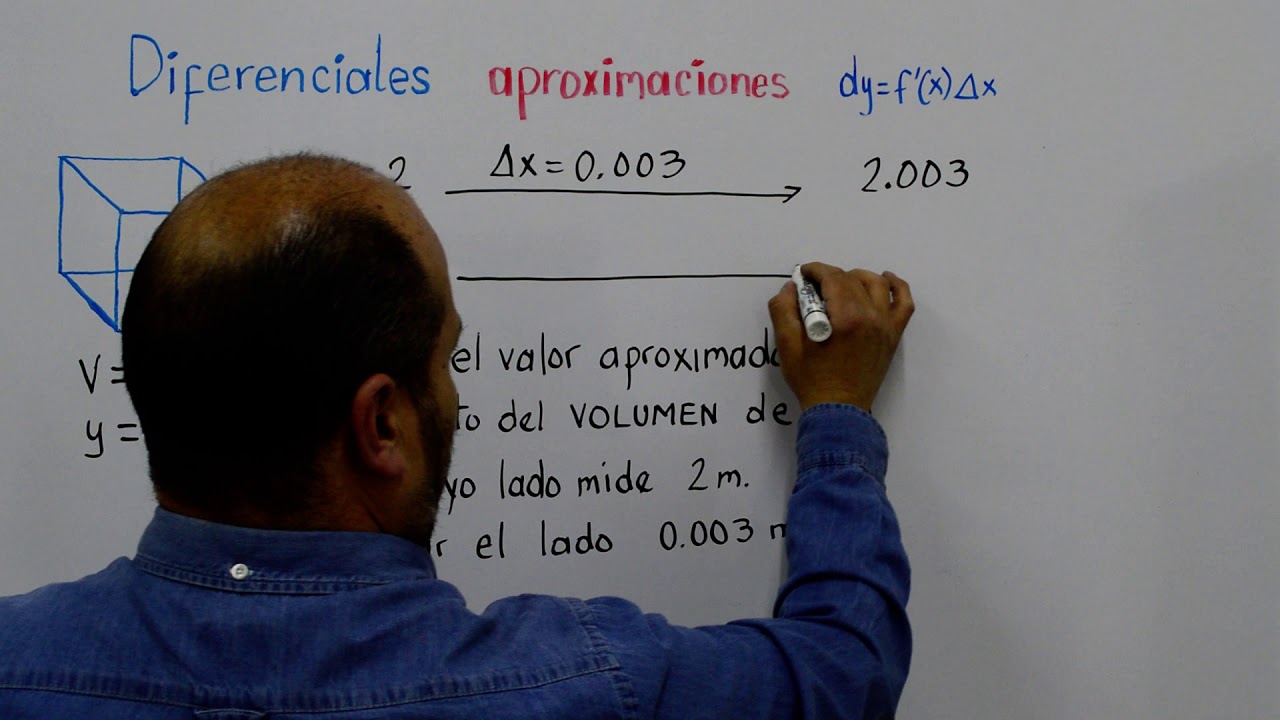 Diferenciales aproximaciones dy=f'(x)Δx
2 Δx=0.003 2.003
V= el valor aproximado
y= del VOLUMEN de
lado mide 2m.
el lado 0.003